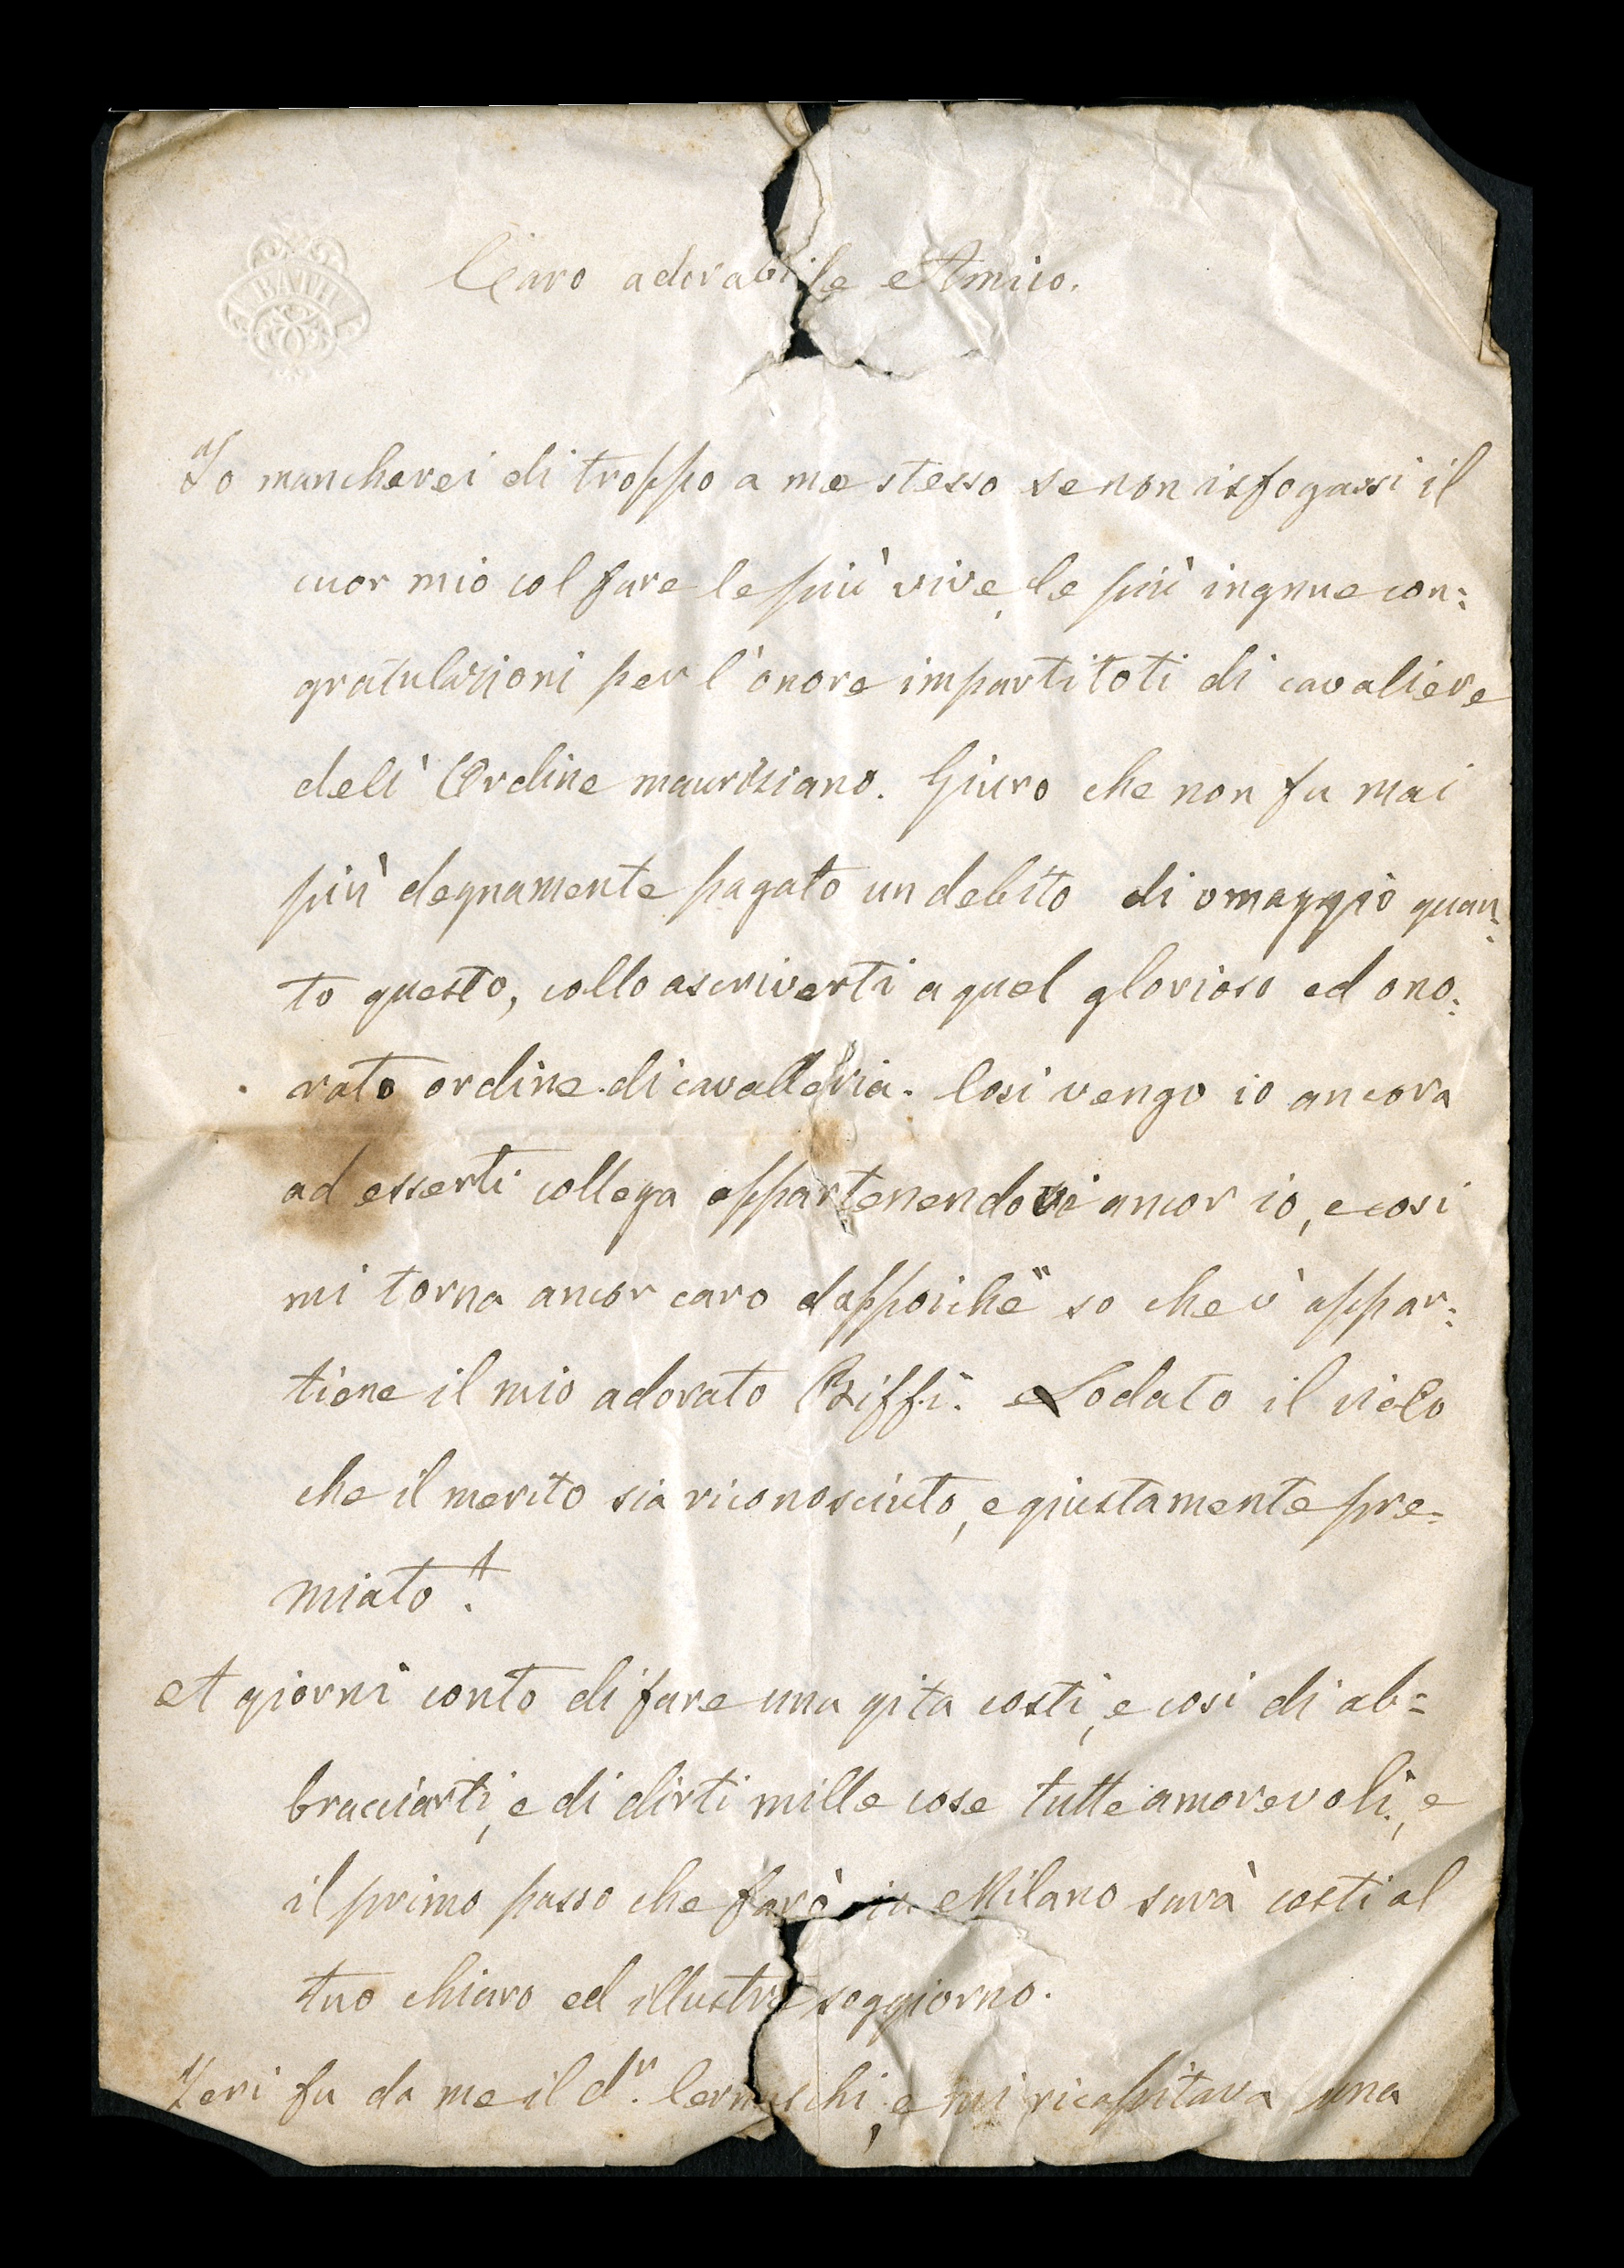 BATH
Caro adorabile Amico.
Io mancherei di troppo a me stesso se non isfogassi il
cuor mio col fare le più vive, le più ingenue con:
gratulazioni per l'onore impartitoti di cavaliere
dell' Ordine mauriziano. Giuro che non fu mai
più degnamente pagato un debito di omaggio quan:
to questo, collo ascriverti a quel glorioso ed ono:
rato ordine di cavalleria. Così vengo io ancora
ad esserti collega appartenendovi ancor io, e così
mi torna ancor caro dappoichè so che v' appar:
tiene il mio adorato Biffi. Lodato il cielo
che il merito sia riconosciuto, e giustamente pre=
miato!
A giorni conto di fare una gita costì, e così di ab=
bracciarti, e di dirti mille cose tutte amorevoli, e
il primo passo che farò in Milano sarà costì al
tuo chiaro ed illustre soggiorno.
Ieri fu da me il dr. Cernuschi, e mi ricapitava una